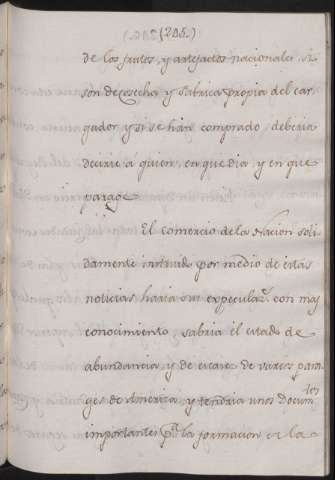 (205.)
de los frutos, y artefactos nacionales si
son de cosecha y fabrica propia del car
gador y si se han comprado, deberia
decirse a quien, en que dia, y en que
parage
El comercio de la Nacion soli
damente instruido por medio de estas
noticias haria sus expecular.s con mas
conocimiento, sabria el estado de
abundancia, y de escases de varios para
ges de America, y tendria unos docum.tos
importantes p.a la formacion de la